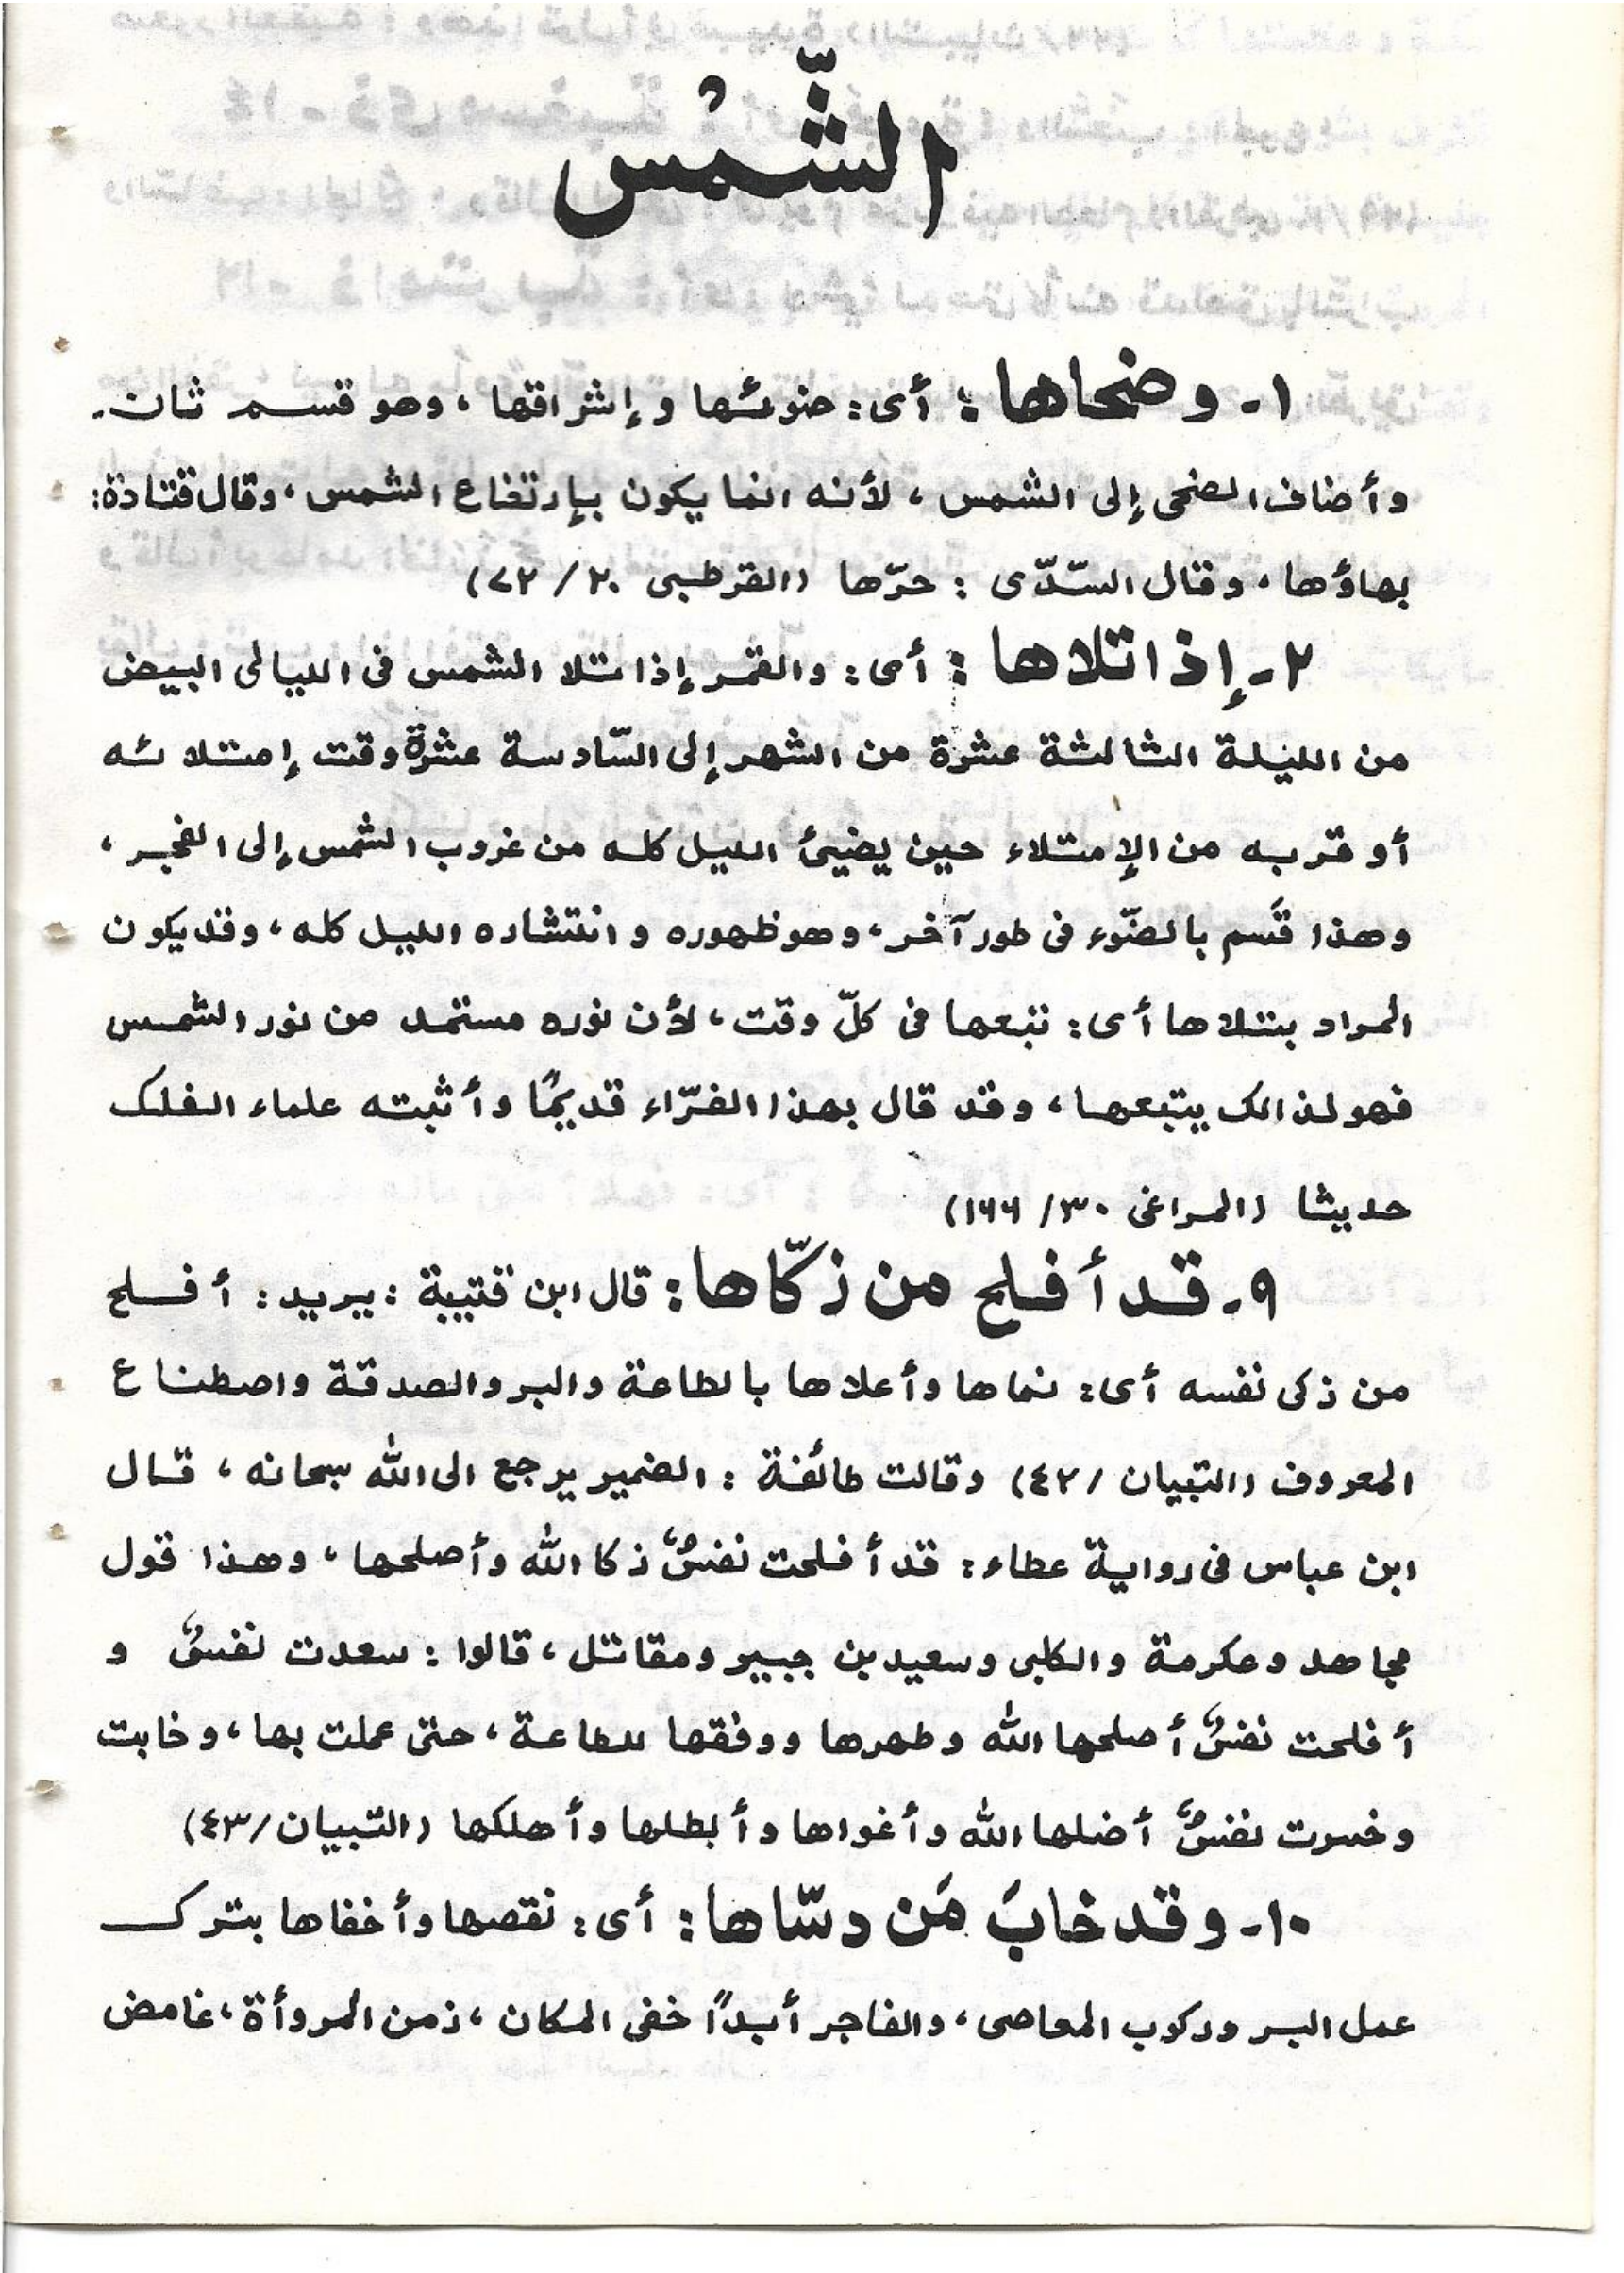 الشّمس
١- وضحاها: أى: ضوئها وإشراقها، وهو قسم ثان.
وأضاف الضحى إلى الشمس، لأنه انما يكون بإرتفاع الشمس، وقال قتادة:
بهاؤها، وقال السّدّى: حرّها (القرطبى ٢٠/٧٢)
٢- إذا تلاها: أى: والقمر إذا تلا الشمس فى الليالى البيض
من الليلة الثالثة عشرة من الشهر إلى السّادسة عشرة وقت إمتلائه
أو قربه من الإمتلاء حين يضيئ الليل كله من غروب الشمس إلى الفجر،
وهذا قَسم بالضّوء فى طور آخر، وهو ظهوره وانتشاره الليل كله، وقد يكون
المراد بتلاها أى: تبعها فى كلّ وقت، لأن نوره مستمد من نور الشمس
فهو لذالك يتبعها، وقد قال بهذا الفرّاء قديمًا وأثبته علماء الفلك
حديثا (المراغى ٣٠/١٦٦)
٩- قد أفلح من زكّاها: قال ابن قتيبة: يريد: أفلح
من زكى نفسه أى: نماها وأعلاها بالطاعة والبر والصدقة واصطناع
المعروف (التبيان/٤٢) وقالت طائفة: الضمير يرجع الى الله سبحانه، قال
ابن عباس فى رواية عطاء: قد أفلحت نفسٌ زكا الله وأصلحها، وهذا قول
مجاهد وعكرمة والكلبى وسعيد بن جبير ومقاتل، قالوا: سعدت نفسٌ و
أفلحت نفسٌ أصلحها الله وطهرها ووفقها للطاعة، حتى عملت بها، وخابت
وخسرت نفسٌ أضلها الله وأغواها وأبطلها وأهلكها (التبيان/٤٣)
١٠- وقد خابَ مَن دسّاها: أى: نقصها وأخفاها بترك
عمل البر وركوب المعاصى، والفاجر أبدًا خفى المكان، زمن المروأة، غامض